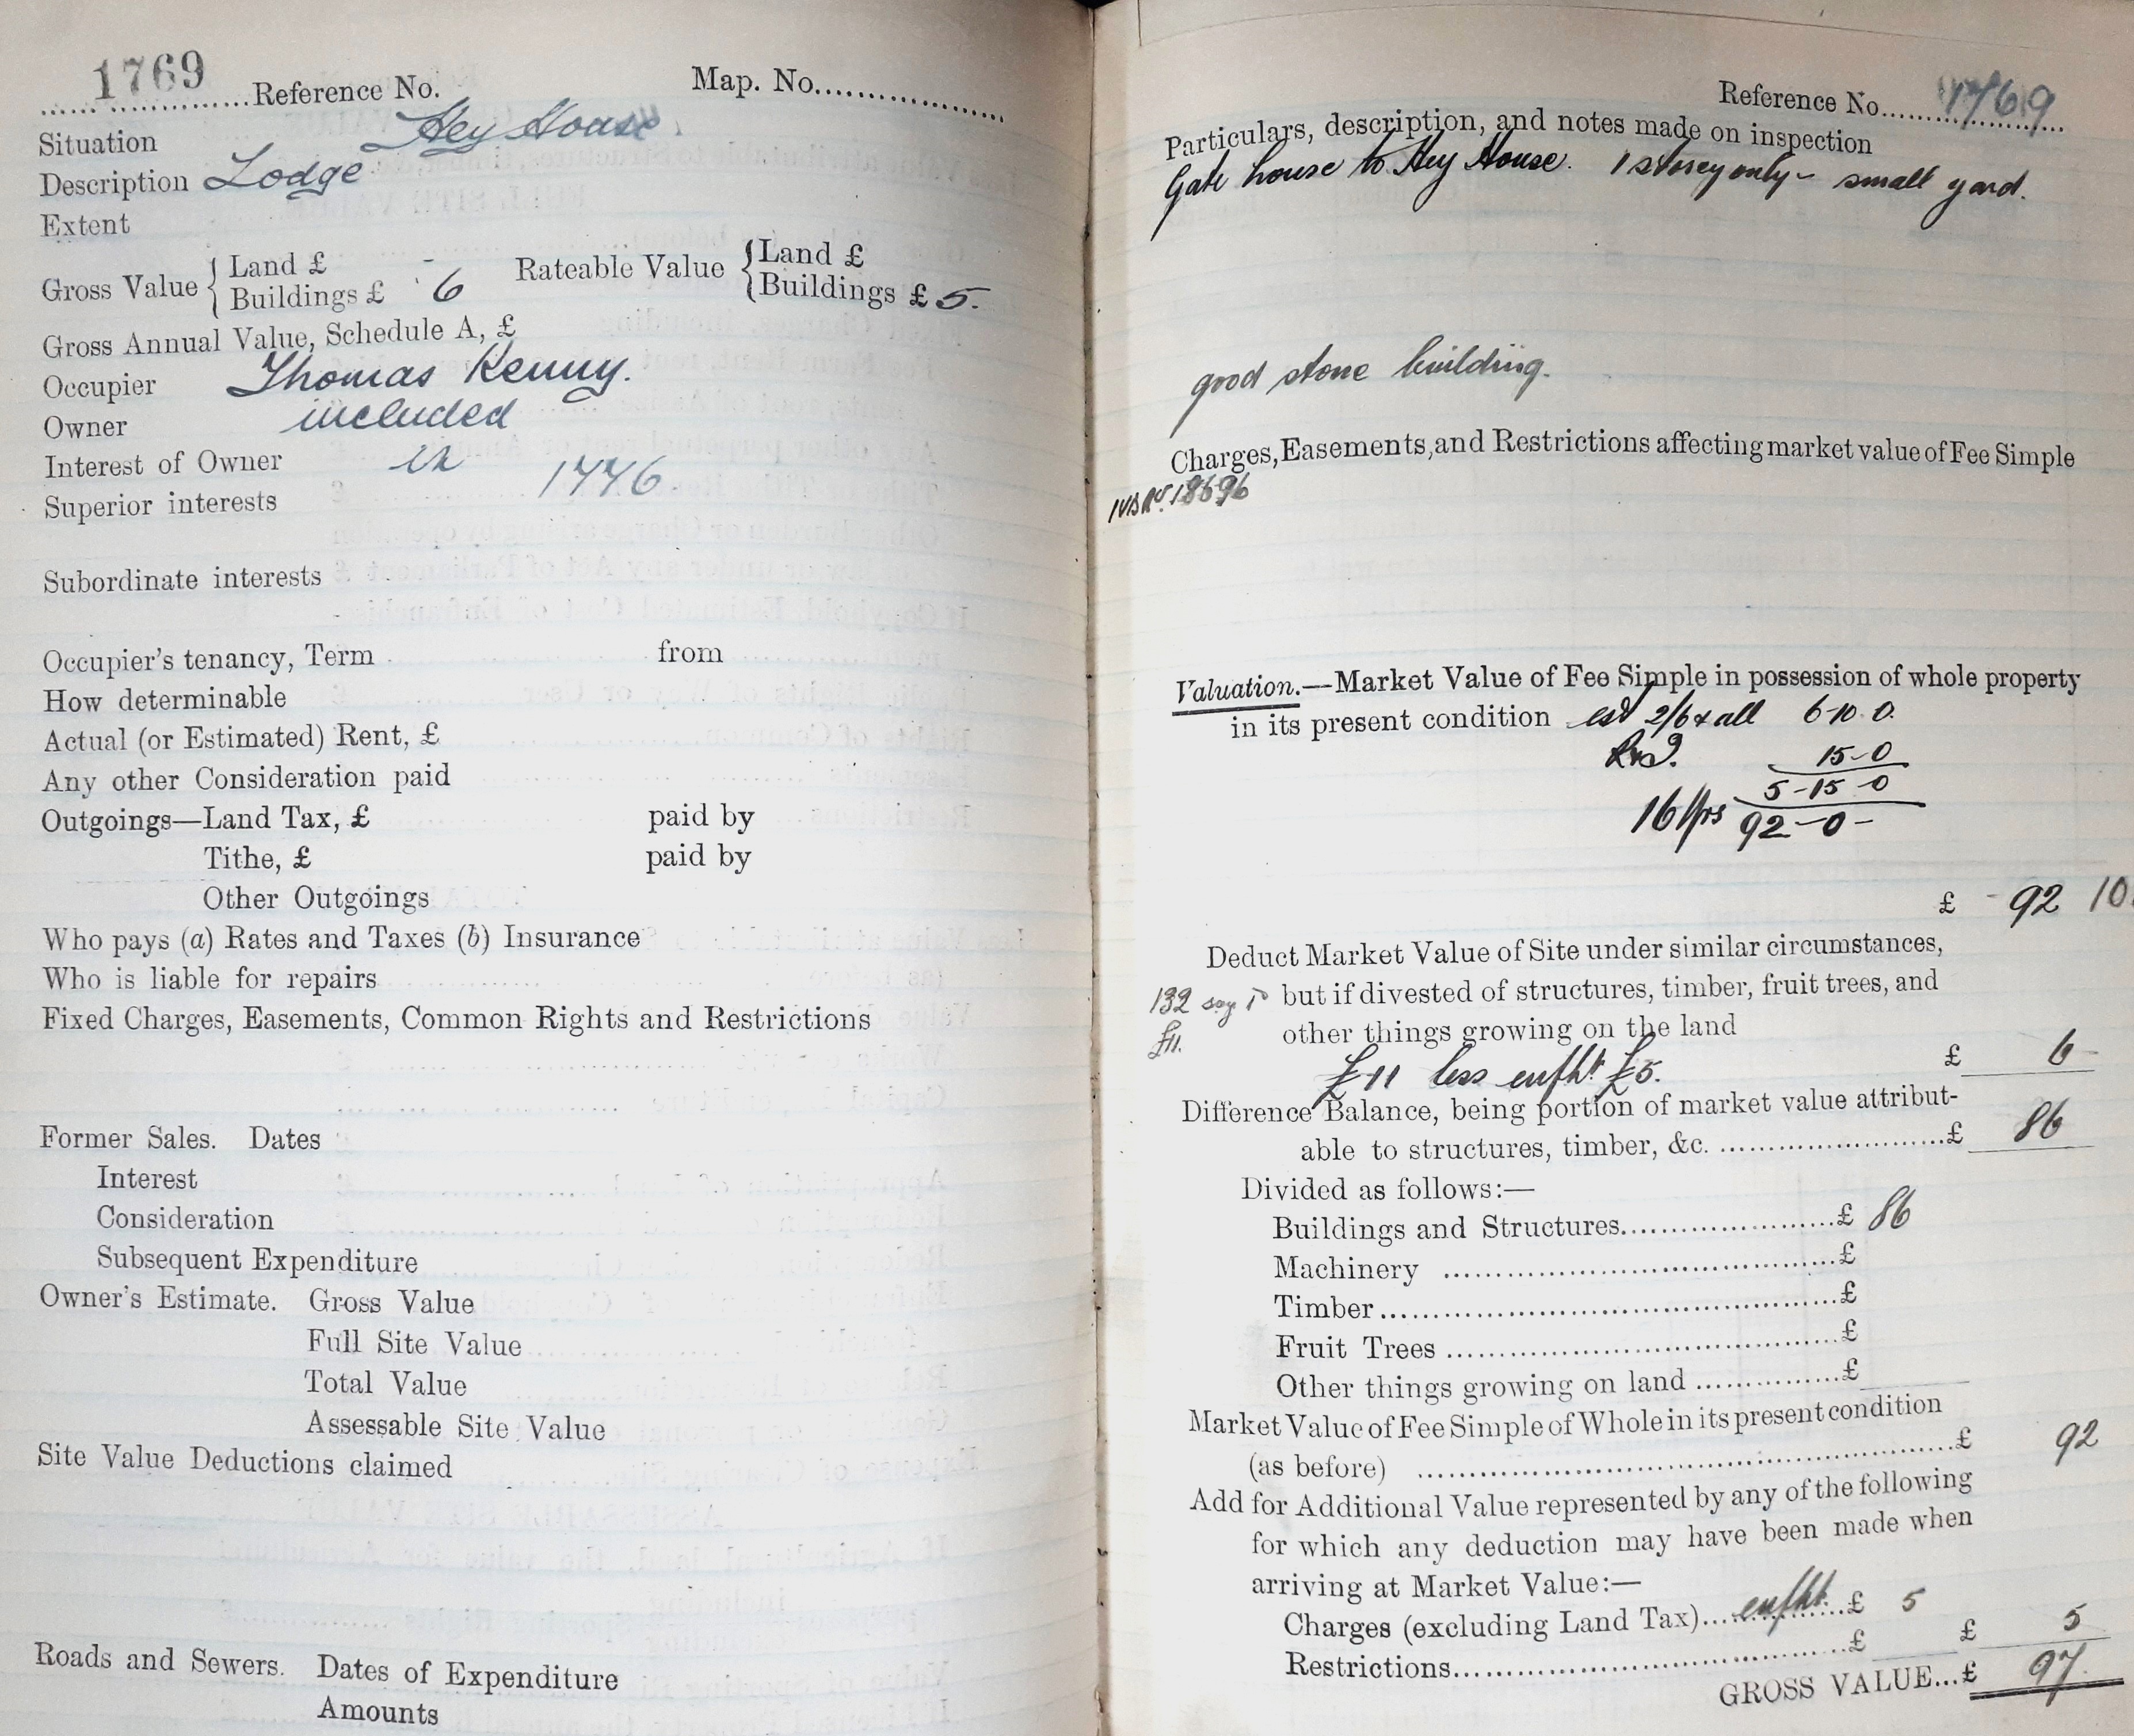 1769 Reference No. Map. No.
Situation Hey House
Description Lodge
Extent
Gross Value { Land £ - Rateable Value { Land £
Buildings £ 6 Buildings £ 5.
Gross Annual Value, Schedule A, £
Occupier Thomas Kenny.
Owner included
Interest of Owner in 1776.
Superior interests
Subordinate interests
Occupier's tenancy, Term from
How determinable
Actual (or Estimated) Rent, £
Any other Consideration paid
Outgoings—Land Tax, £ paid by
Tithe, £ paid by
Other Outgoings
Who pays (a) Rates and Taxes (b) Insurance
Who is liable for repairs
Fixed Charges, Easements, Common Rights and Restrictions
Former Sales. Dates
Interest
Consideration
Subsequent Expenditure
Owner's Estimate. Gross Value
Full Site Value
Total Value
Assessable Site Value
Site Value Deductions claimed
Roads and Sewers. Dates of Expenditure
Amounts
Reference No. 1769
Particulars, description, and notes made on inspection
Gate house to Hey House. 1 storey only - small yard.
good stone building.
Charges, Easements, and Restrictions affecting market value of Fee Simple
Valuation.—Market Value of Fee Simple in possession of whole property
in its present condition est 2/6 & all 6-10.0.
15-0
5-15-0
16 yrs 92-0-
£ 92 10.
Deduct Market Value of Site under similar circumstances,
132 say but if divested of structures, timber, fruit trees, and
£11. other things growing on the land
£11 less enfht £5. £ 6
Difference Balance, being portion of market value attribut-
able to structures, timber, &c. £ 86
Divided as follows:—
Buildings and Structures £ 86
Machinery £
Timber £
Fruit Trees £
Other things growing on land £
Market Value of Fee Simple of Whole in its present condition
(as before) £ 92
Add for Additional Value represented by any of the following
for which any deduction may have been made when
arriving at Market Value:—
Charges (excluding Land Tax) enfht £ 5
Restrictions £ £ 5
GROSS VALUE...£ 97